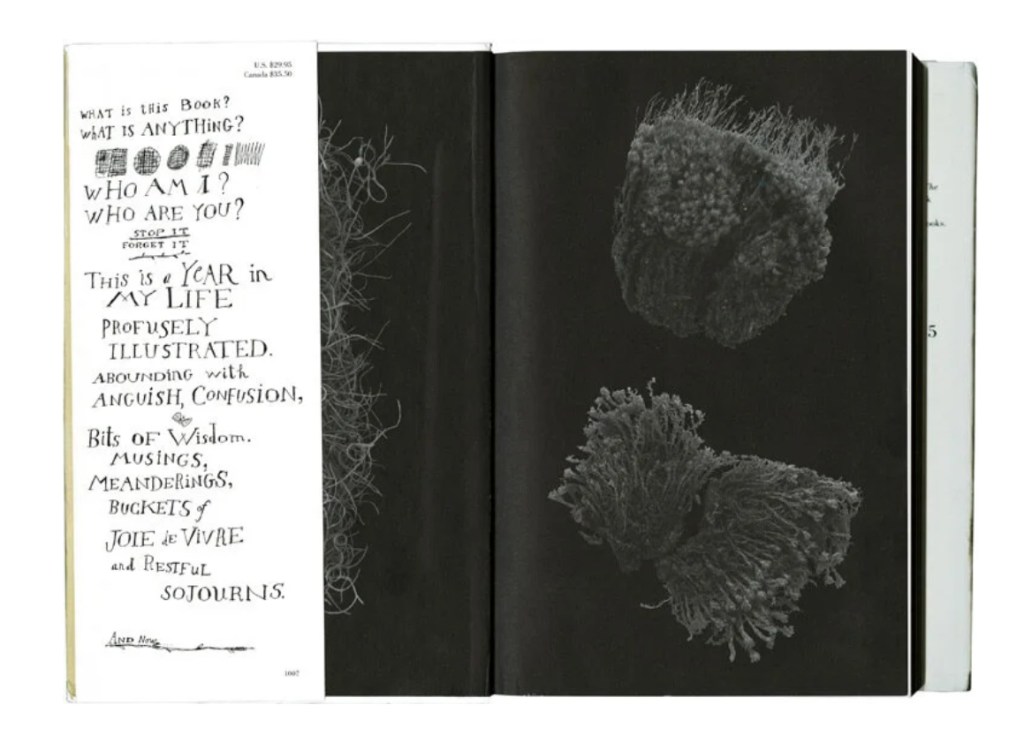 U.S. $29.95
Canada $35.50
WHAT is tHiS BOOK?
WHAT IS ANYTHiNG?
WHO AM I?
WHO ARE YOU?
STOP IT
FORGET IT
THis is a YEAR in
MY LIFE
PROFUSELY
ILLUSTRATED.
ABOUNDiNG with
ANGUiSH, CONFUSiON,
Bits OF Wisdom.
MUSiNGS,
MEANDERiNGS,
BUCKETS of
JOIE de VIVRE
and RESTFUL
SOJOURNS.
AND Now
1007
he
ooks.
5